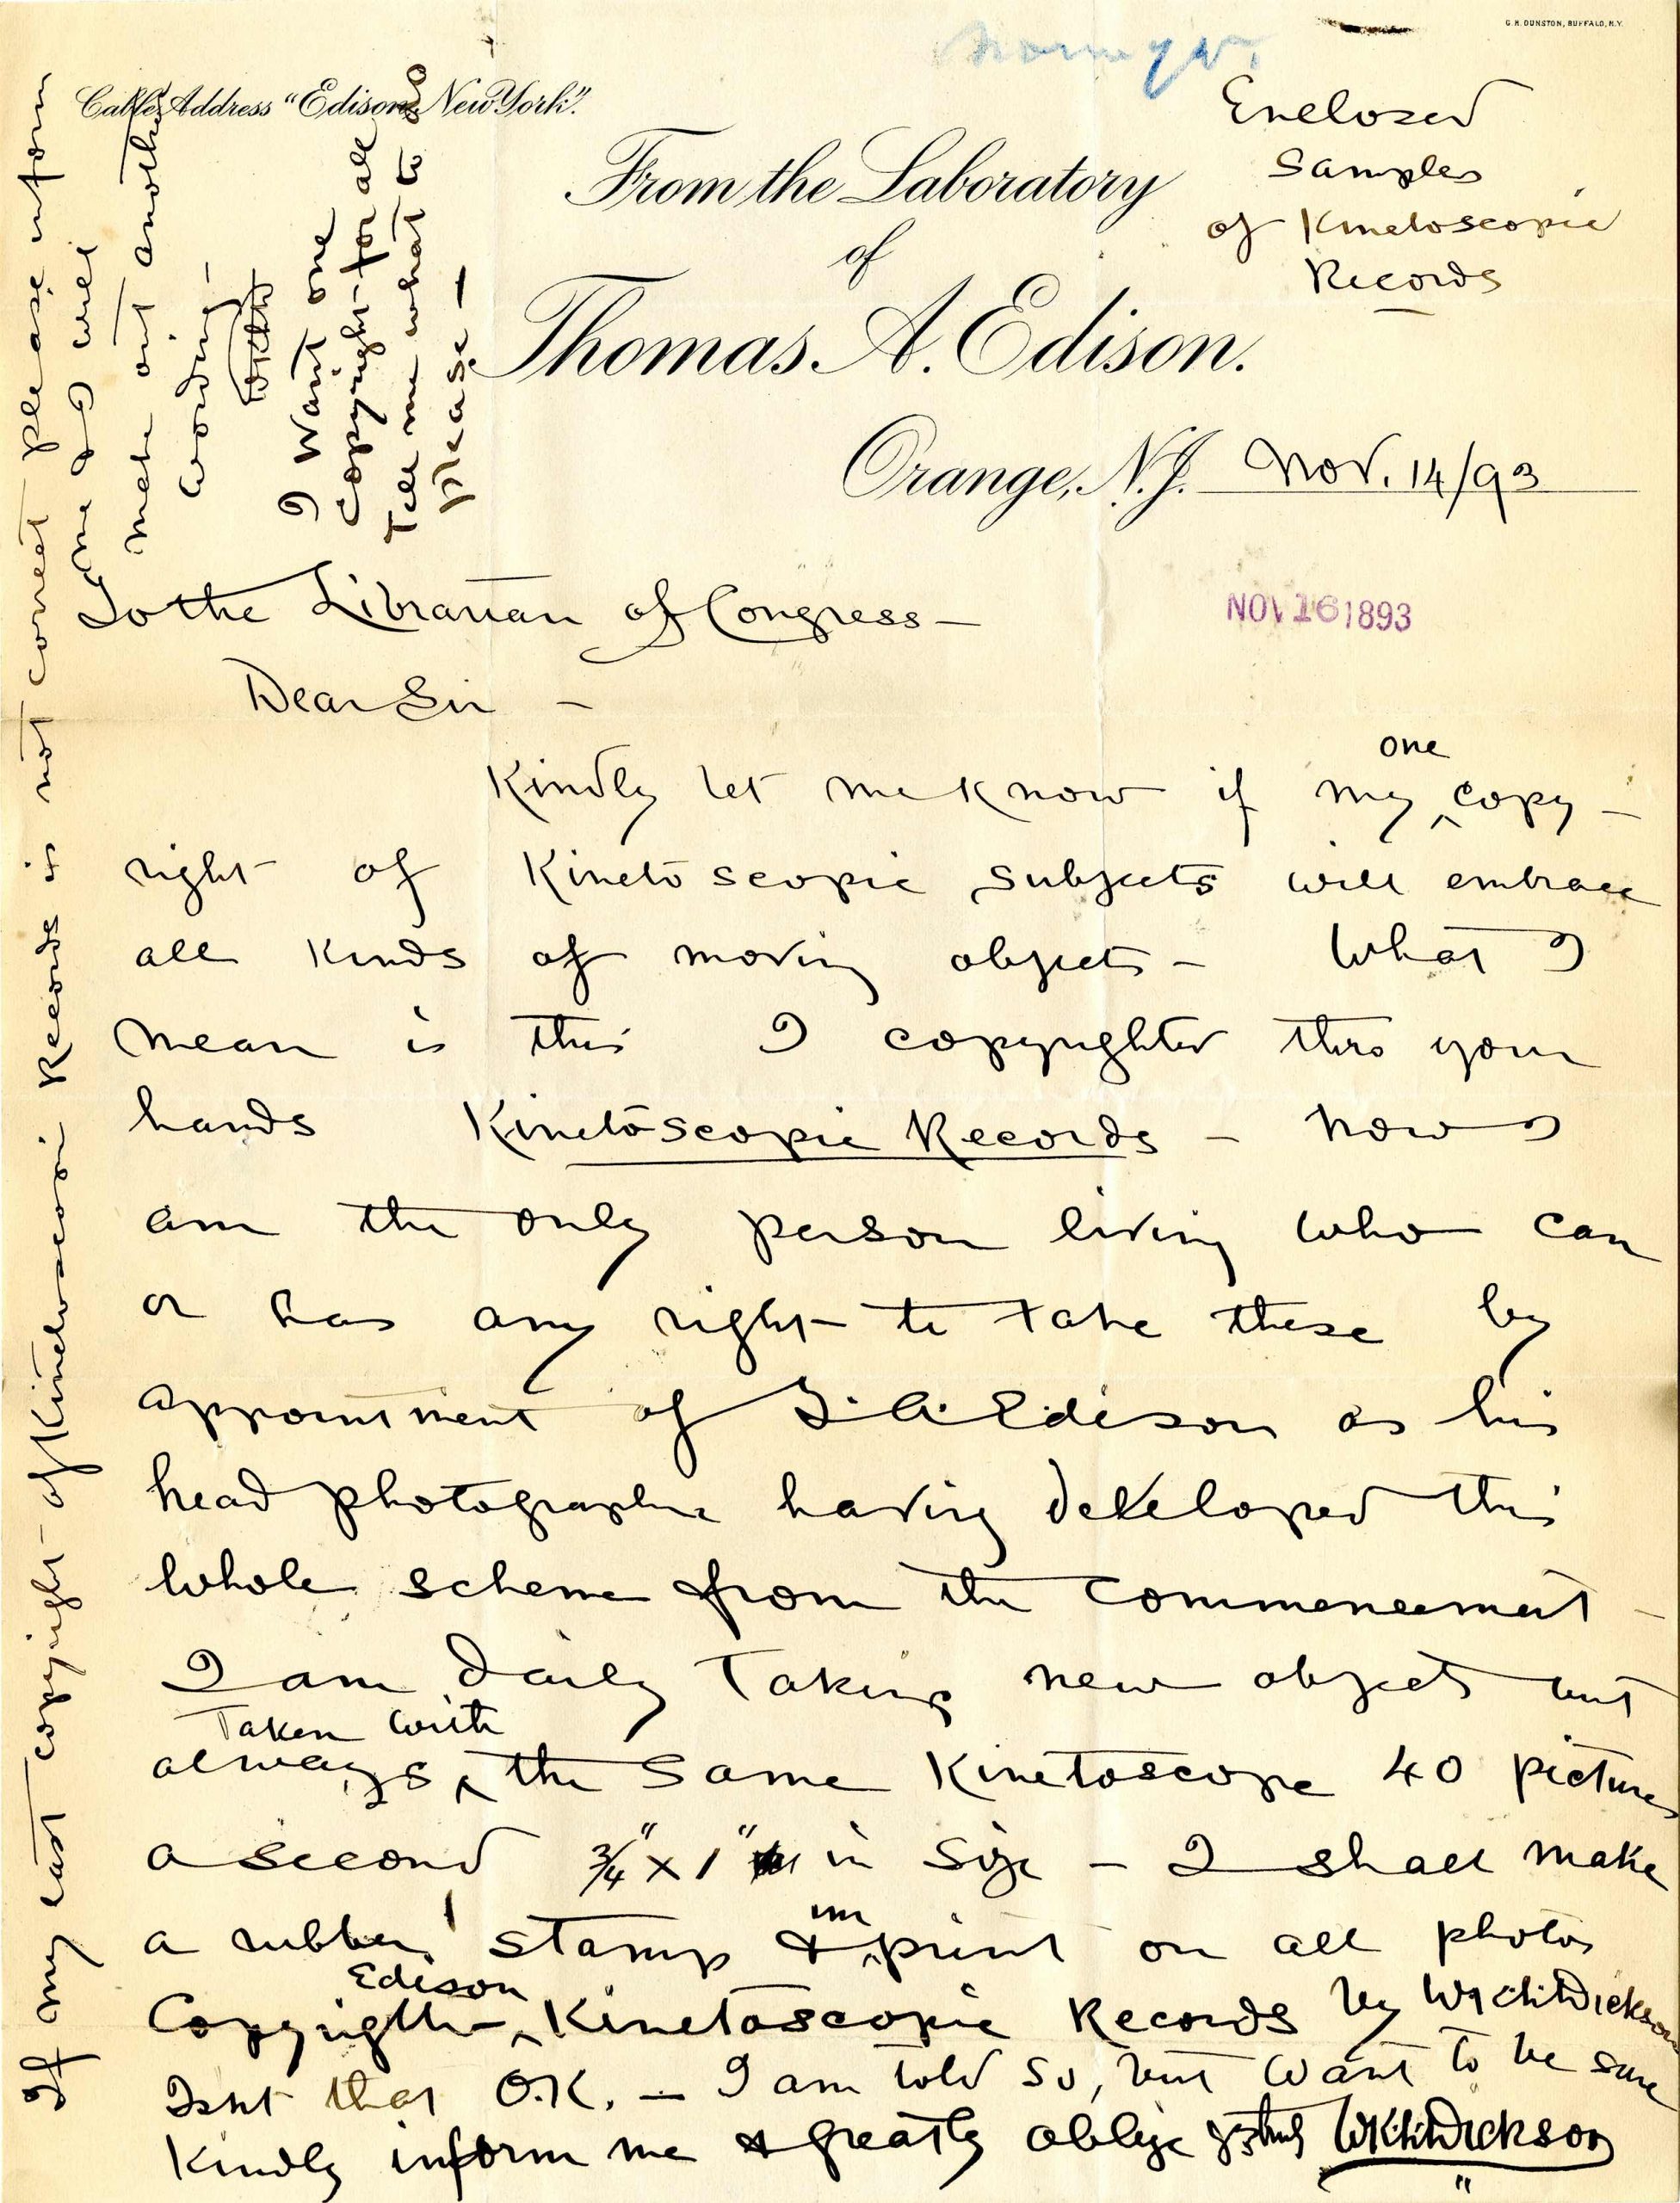 G. H. DUNSTON, BUFFALO, N.Y.
Cable Address "Edison, New York".
Enclosed
Samples
of Kinetoscopic
Records
From the Laboratory
of
Thomas A. Edison.
Orange, N.J. Nov. 14/93
NOV 16 1893
To the Librarian of Congress —
Dear Sir —
one
Kindly let me know if my ‸ copy —
right of Kinetoscopic subjects will embrace
all kinds of moving objects — What I
mean is this I copyrighted thro your
hands Kinetoscopic Records — now I
am the only person living who can
or has any right to take these by
appointment of T. A. Edison as his
head photographer having developed this
whole scheme from the commencement —
I am daily taking new objects but
Taken with
always ‸ the same Kinetoscope 40 pictures
a second 3/4" x 1" in size — I shall make
im
a rubber stamp & ‸ print on all photos
Edison
Copyrighted ‸ Kinetoscopic Records by W. K. L. Dickson
Isnt that O.K. — I am told so, but want to be sure
Kindly inform me & greatly oblige yrs truly W. K. L. Dickson
If my last copyright of Kinetoscopic Records is not correct please inform
me & I will
make out another
wording —
I want one
copyright for all
Tell me what to do
please —